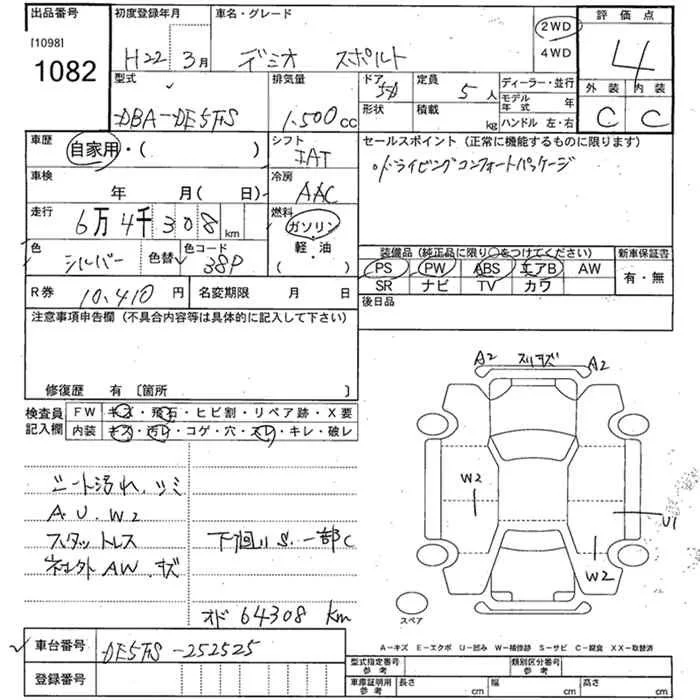 出品番号 初度登録年月 車名・グレード 評価点
[1098]
1082
H22年 3月 デミオ スポルト
2WD
4WD
4
外装 内装
C C
型式 排気量 ドア 定員 ディーラー・並行
DBA-DE5FS 1.500cc 5D 5人
形状 積載 kg
モデル年式 年
ハンドル 左・右
車歴 自家用・( )
シフト
IAT
セールスポイント (正常に機能するものに限ります)
ドライビングコンフォートパッケージ
車検 年 月( 日)
冷房
AAC
走行 6万4千308km
燃料
ガソリン・
軽・油
( )
色 シルバー 色替 色コード 38P
装備品 (純正品に限り○をつけてください) 新車保証書
PS PW ABS エアB AW
SR ナビ TV カワ
有・無
後日品
R券 10,410円 名変期限 月 日
注意事項申告欄 (不具合内容等は具体的に記入して下さい)
修復歴 有 〔箇所 〕
検査員記入欄
FW キズ・飛石・ヒビ割・リペア跡・X要
内装 キズ・汚レ・コゲ・穴・スレ・キレ・破レ
シート汚れ、シミ
A.U.W2
スタットレス
下廻りS.一部C
オド 64308 km
A2 スリキズ A2
W2
U1
W2
スペア
A-キズ E-エクボ U-凹み W-補修跡 S-サビ C-腐食 XX-取替済
車台番号 DE5FS-252525
登録番号
型式指定番号
参考
類別区分番号
参考
車庫証明用
参考
長さ cm 幅 cm 高さ cm